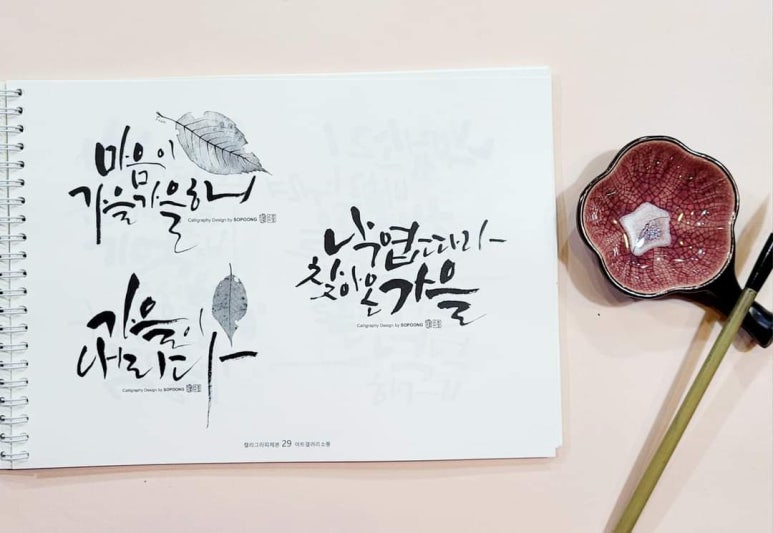 마음이
가을가을하니
Calligraphy Design by SOPOONG
가을이
내리다
Calligraphy Design by SOPOONG
낙엽따라
찾아온 가을
Calligraphy Design by SOPOONG
캘리그라피체본 29 아트갤러리소풍